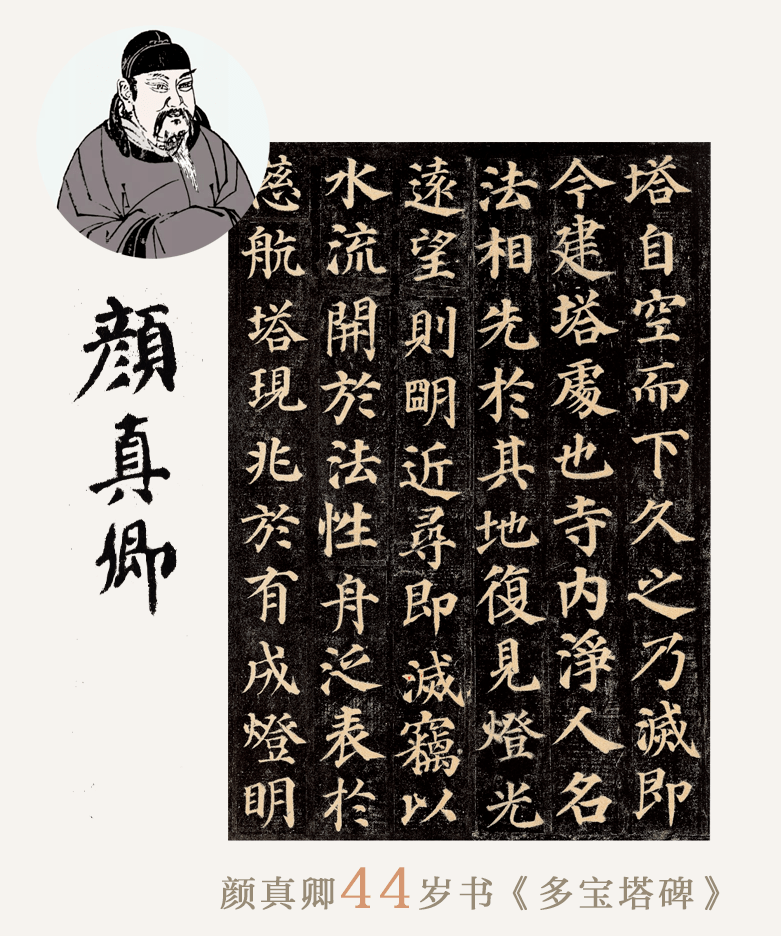 顏真卿
塔自空而下久之乃滅即
今建塔處也寺内淨人名
法相先於其地復見燈光
遠望則明近尋即滅竊以
水流開於法性舟泛表於
慈航塔現兆於有成燈明
颜真卿44岁书《多宝塔碑》